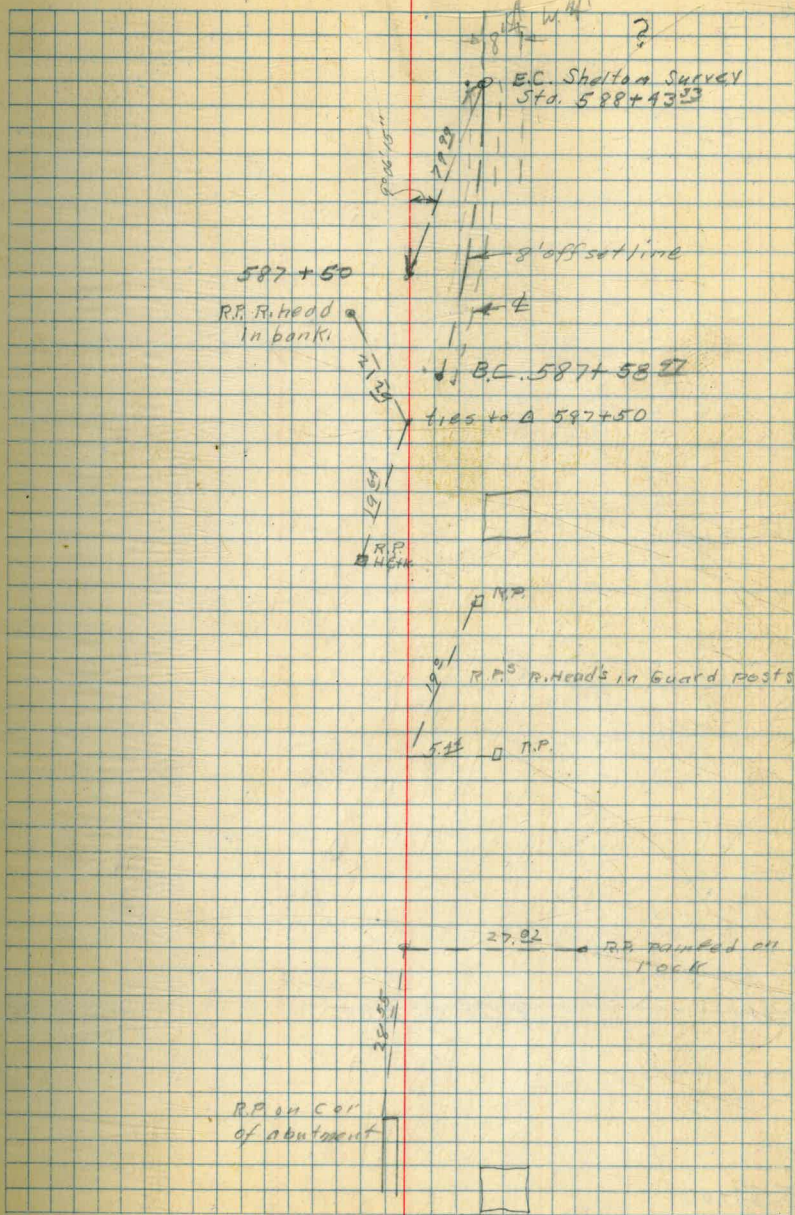 8'
?
E.C. Shelton Survey
Sta. 588+43 33
8' offset line
587+50
R.P. R. head
in bank.
21 29
B.C. 587+58 97
ties to Δ 587+50
19 64
R.P.
R.P.
R.P.s R. Head's in Guard posts
5.44
R.P.
27.02
R.P. painted on
rock
28.55
R.P. on Cor
of abutment